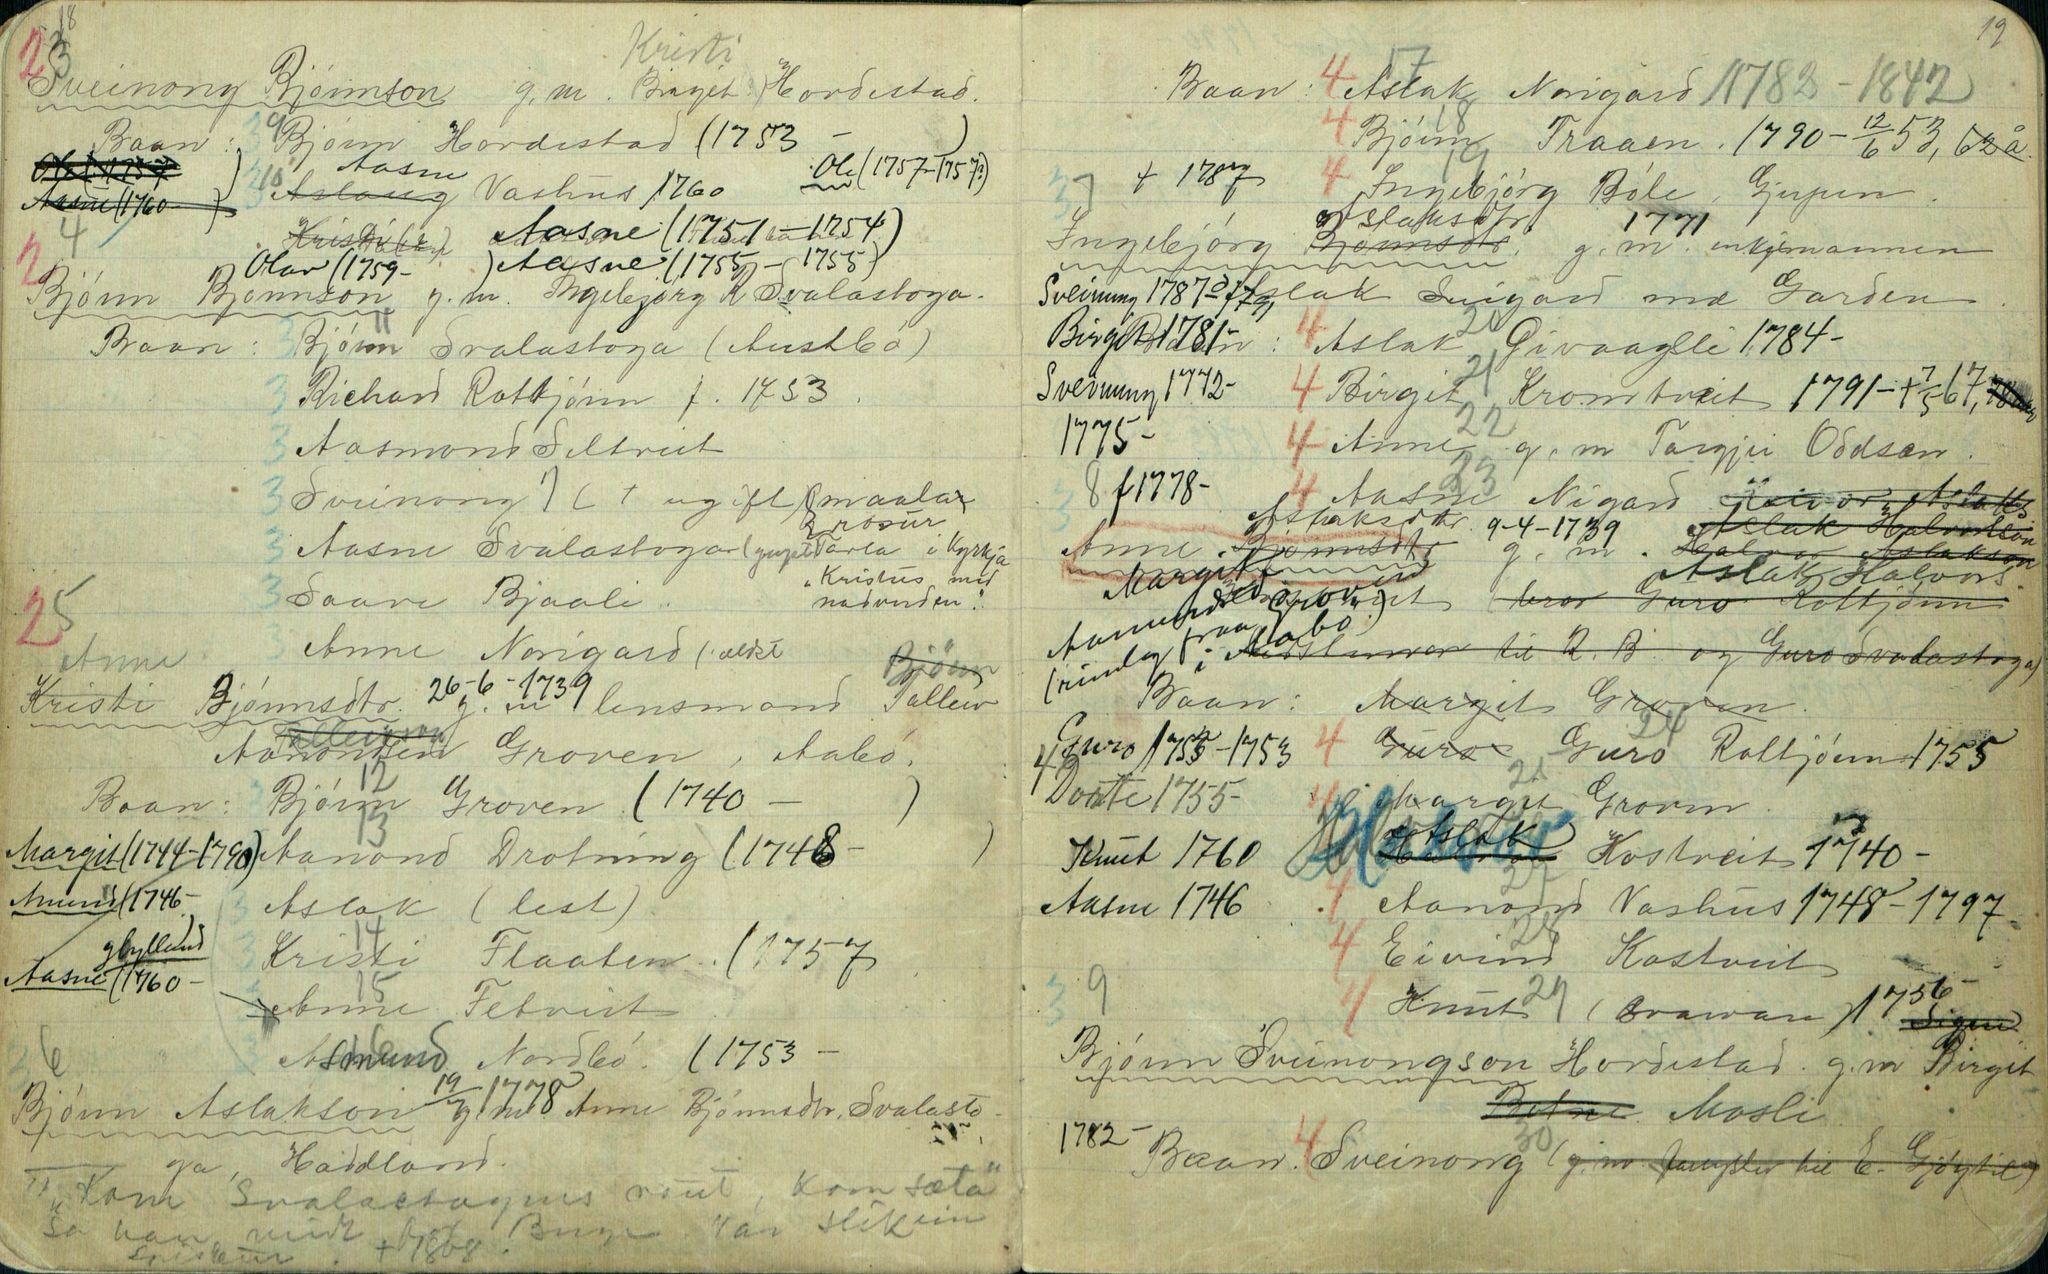 18
23
Kristi
Sveinong Bjørnson g. m. Birgit Hordestad.
Baan: 3 9 Bjørn Hordestad (1753 - )
Ole (1757) 3 10 Aslaug Aasne Vashus 1760 Ole (1757-1757?)
Aasne (1760- )
4 Kristi Aasne (1751-1754)
2 Olav (1759- ) Aasne (1755-1755)
Bjørn Bjørnson g. m. Ingebjørg K Svalastoga.
Baan: 3 11 Bjørn Svalastoga (Austbø)
3 Richard Rottjønn f. 1753.
3 Aasmond Seltveit
3 Sveinong (+ ugift) (maalar
& rosur
3 Aasne Svalastoga (gupt Tavla i Kyrkja
3 Saave Bjaali. "Kristus med
nadverden".
25
3 Anne Norigard (eldst
Anne Bjønn
Kristi Bjønnsdtr. 26-6-1739 g. m lensmand Talleiv
Talleivson
Aanonsen Groven, Aabø.
Baan: 12 Bjønn Groven (1740 - )
Margit (1744-1790) 13 Aanond Drotning (1748 - )
Amund (1746- 3 Aslak (lest)
gbyllund 3 14 Kristi Flaaten. (1757
Aasne (1760- 15 Anne Fetveit
2 6 16 Asmund Nordbø. (1753 -
Bjønn Aslakson g. m 1778 Anne Bjønnsdtr. Svalasto-
ga, Haddland.
"Kom Svalastogens rout, kom sæta"
Sa han Var slik ein
+ 1808.
19
Baan: 4 17 Aslak Norigard 1782 - 1842
4 18 Bjønn Traaen. 1790 - 12/6 53, 62 å.
3 7 + 1787 4 19 Ingebjørg Bøle, Gjupen.
Aslaksdtr. 1771
Ingebjørg Bjønnsdtr. g. m. enkjemannen
Sveinung 1787- Aslak Snigard me Garden.
Birgit 1781- Baan: 4 20 Aslak Givaagli 1784-
Sveinung 1772- 4 21 Birgit Kromtveit 1791- + 7/5 67,
1775- 4 22 Anne g. m Targjei Oddsen.
8 f 1778- 4 23 Aasne Nigard
3 Aslaksdtr. 9-4-1739 Aslak Halvorson
Anne Bjønnsdtr g. m. Halvor Aslakson
Margit Aslak Halvors.
(bror Guro Rottjønn
Aamund Groven
(rimlag fraa Aabø.)
til R. B. og Guro Svalastoga)
Baan: Margit Groven.
Guro 1753-1753 4 24 Guro Guro Rottjønn 1755
4 Dorte 1755- 4 25 Margit Groven
Knut 1760 Aslak Kostveit 1740-
Aasne 1746 4 27 Aanond Vashus 1748-1797
4 28 Eivind Kostveit
3 9 4 29 Knut (Aravar) 1756-
Signe
Bjønn Sveinongson Hordestad. g. m Birgit
Betne Mosli
1782- Baan: 4 30 Sveinong (g. m. til E. Gjøytil)